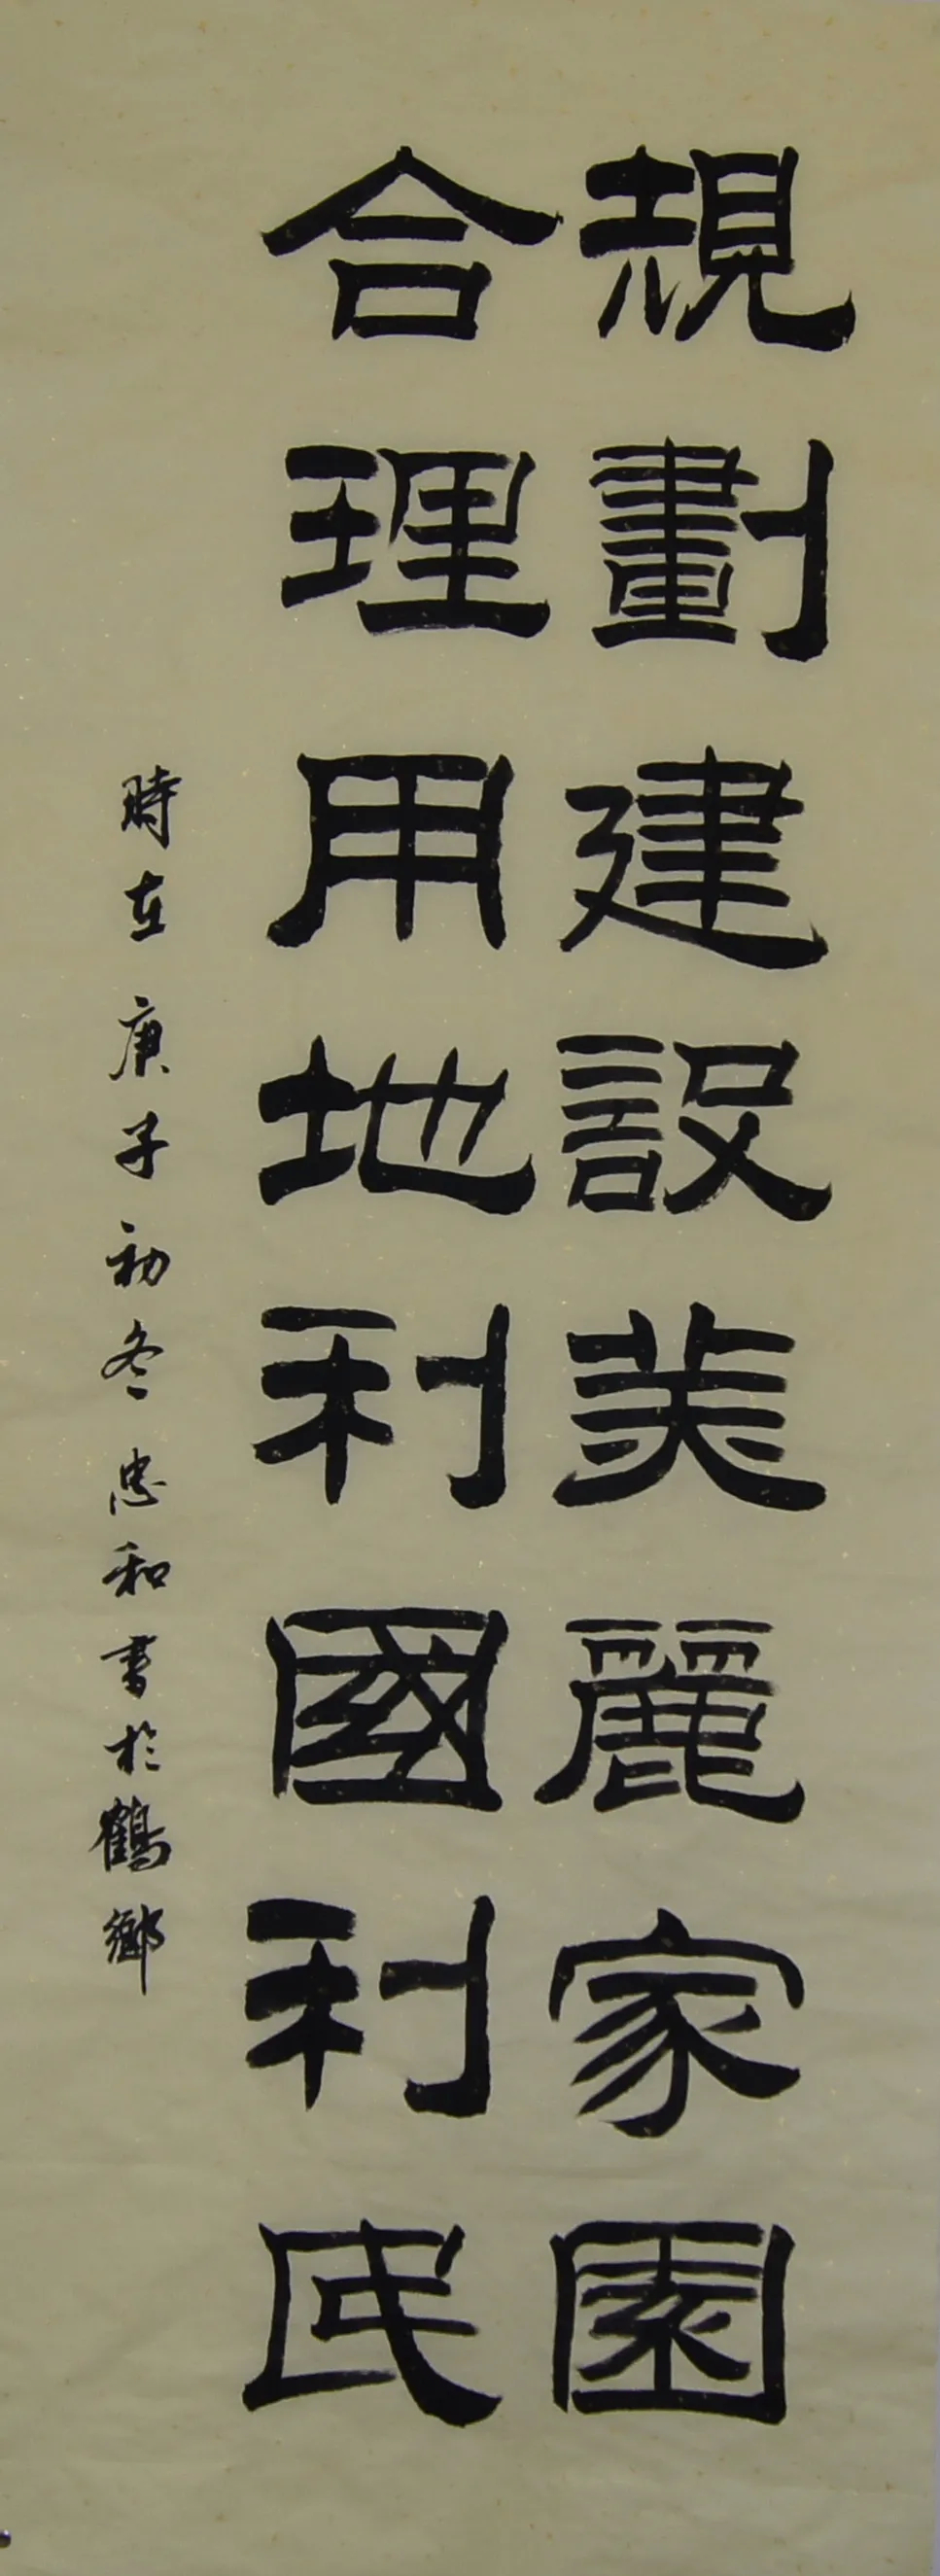 規劃建設美麗家園
合理用地利國利民
時在庚子初冬忠和書於鶴鄉